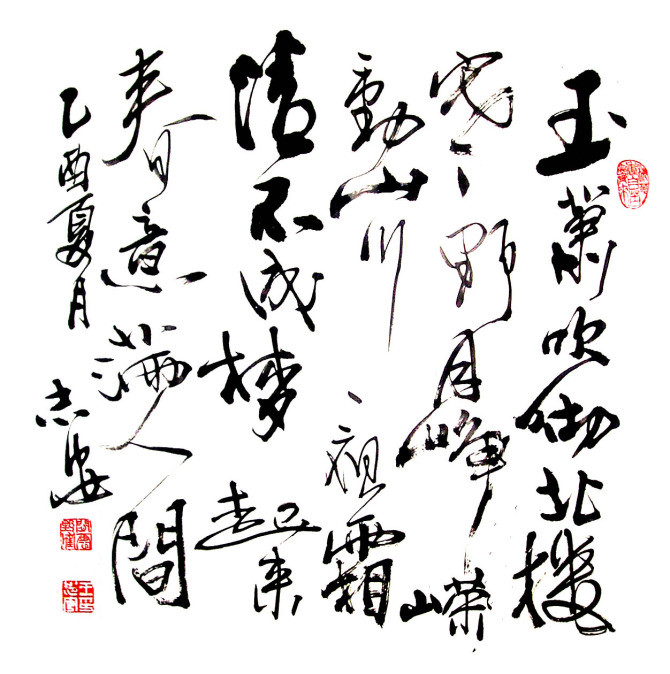 玉蕭吹彻北楼
寒野月峥嵘
動山川一夜霜
清不成梦起来
春意满人間
乙酉夏月
志安